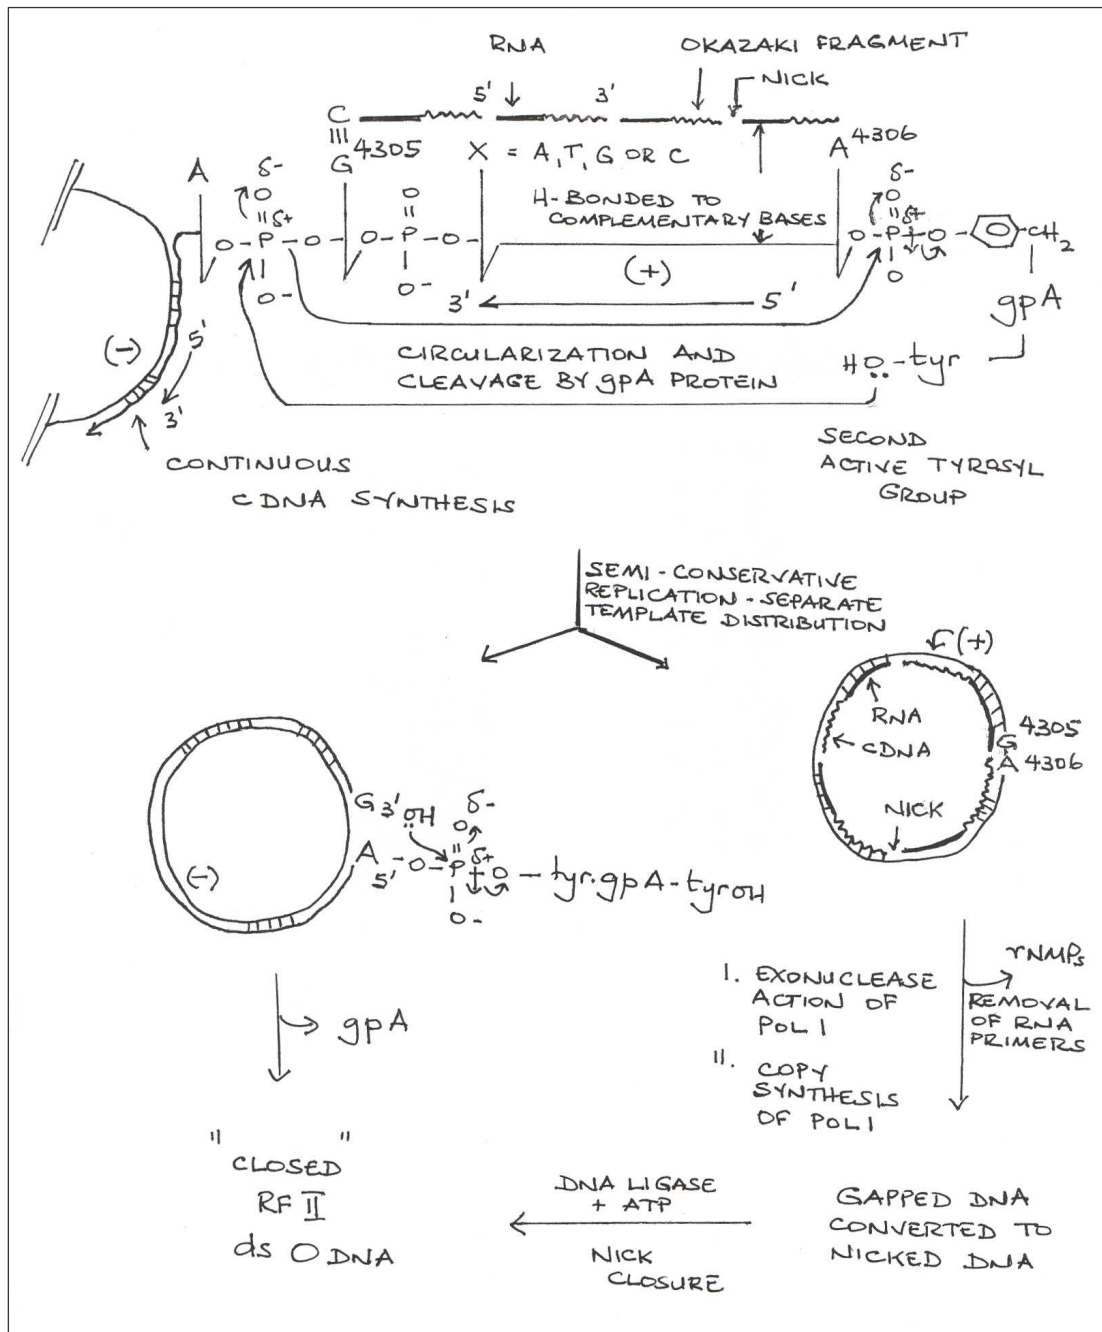 RNA
OKAZAKI FRAGMENT
NICK
5'
3'
C
G 4305
X = A, T, G OR C
A 4306
A
δ-
O
δ+
O - P - O
O-
O - P - O
O
O-
H-BONDED TO
COMPLEMENTARY BASES
δ-
O
δ+
O - P - O - CH2
O
(+)
3'
5'
gpA
(-)
5'
3'
CIRCULARIZATION AND
CLEAVAGE BY gPA PROTEIN
HO-tyr
CONTINUOUS
CDNA SYNTHESIS
SECOND
ACTIVE TYROSYL
GROUP
SEMI-CONSERVATIVE
REPLICATION-SEPARATE
TEMPLATE DISTRIBUTION
(+)
RNA
CDNA
G 4305
A 4306
NICK
G 3' OH
δ-
O
δ+
A 5' - O - P - O - tyr.gpA-tyrOH
O-
(-)
gpA
I. EXONUCLEASE
ACTION OF
POL I
II. COPY
SYNTHESIS
OF POL I
rNMPs
REMOVAL
OF RNA
PRIMERS
"CLOSED"
RF II
ds O DNA
DNA LIGASE
+ ATP
NICK
CLOSURE
GAPPED DNA
CONVERTED TO
NICKED DNA